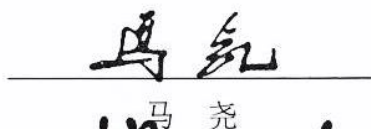 马尧
马 尧